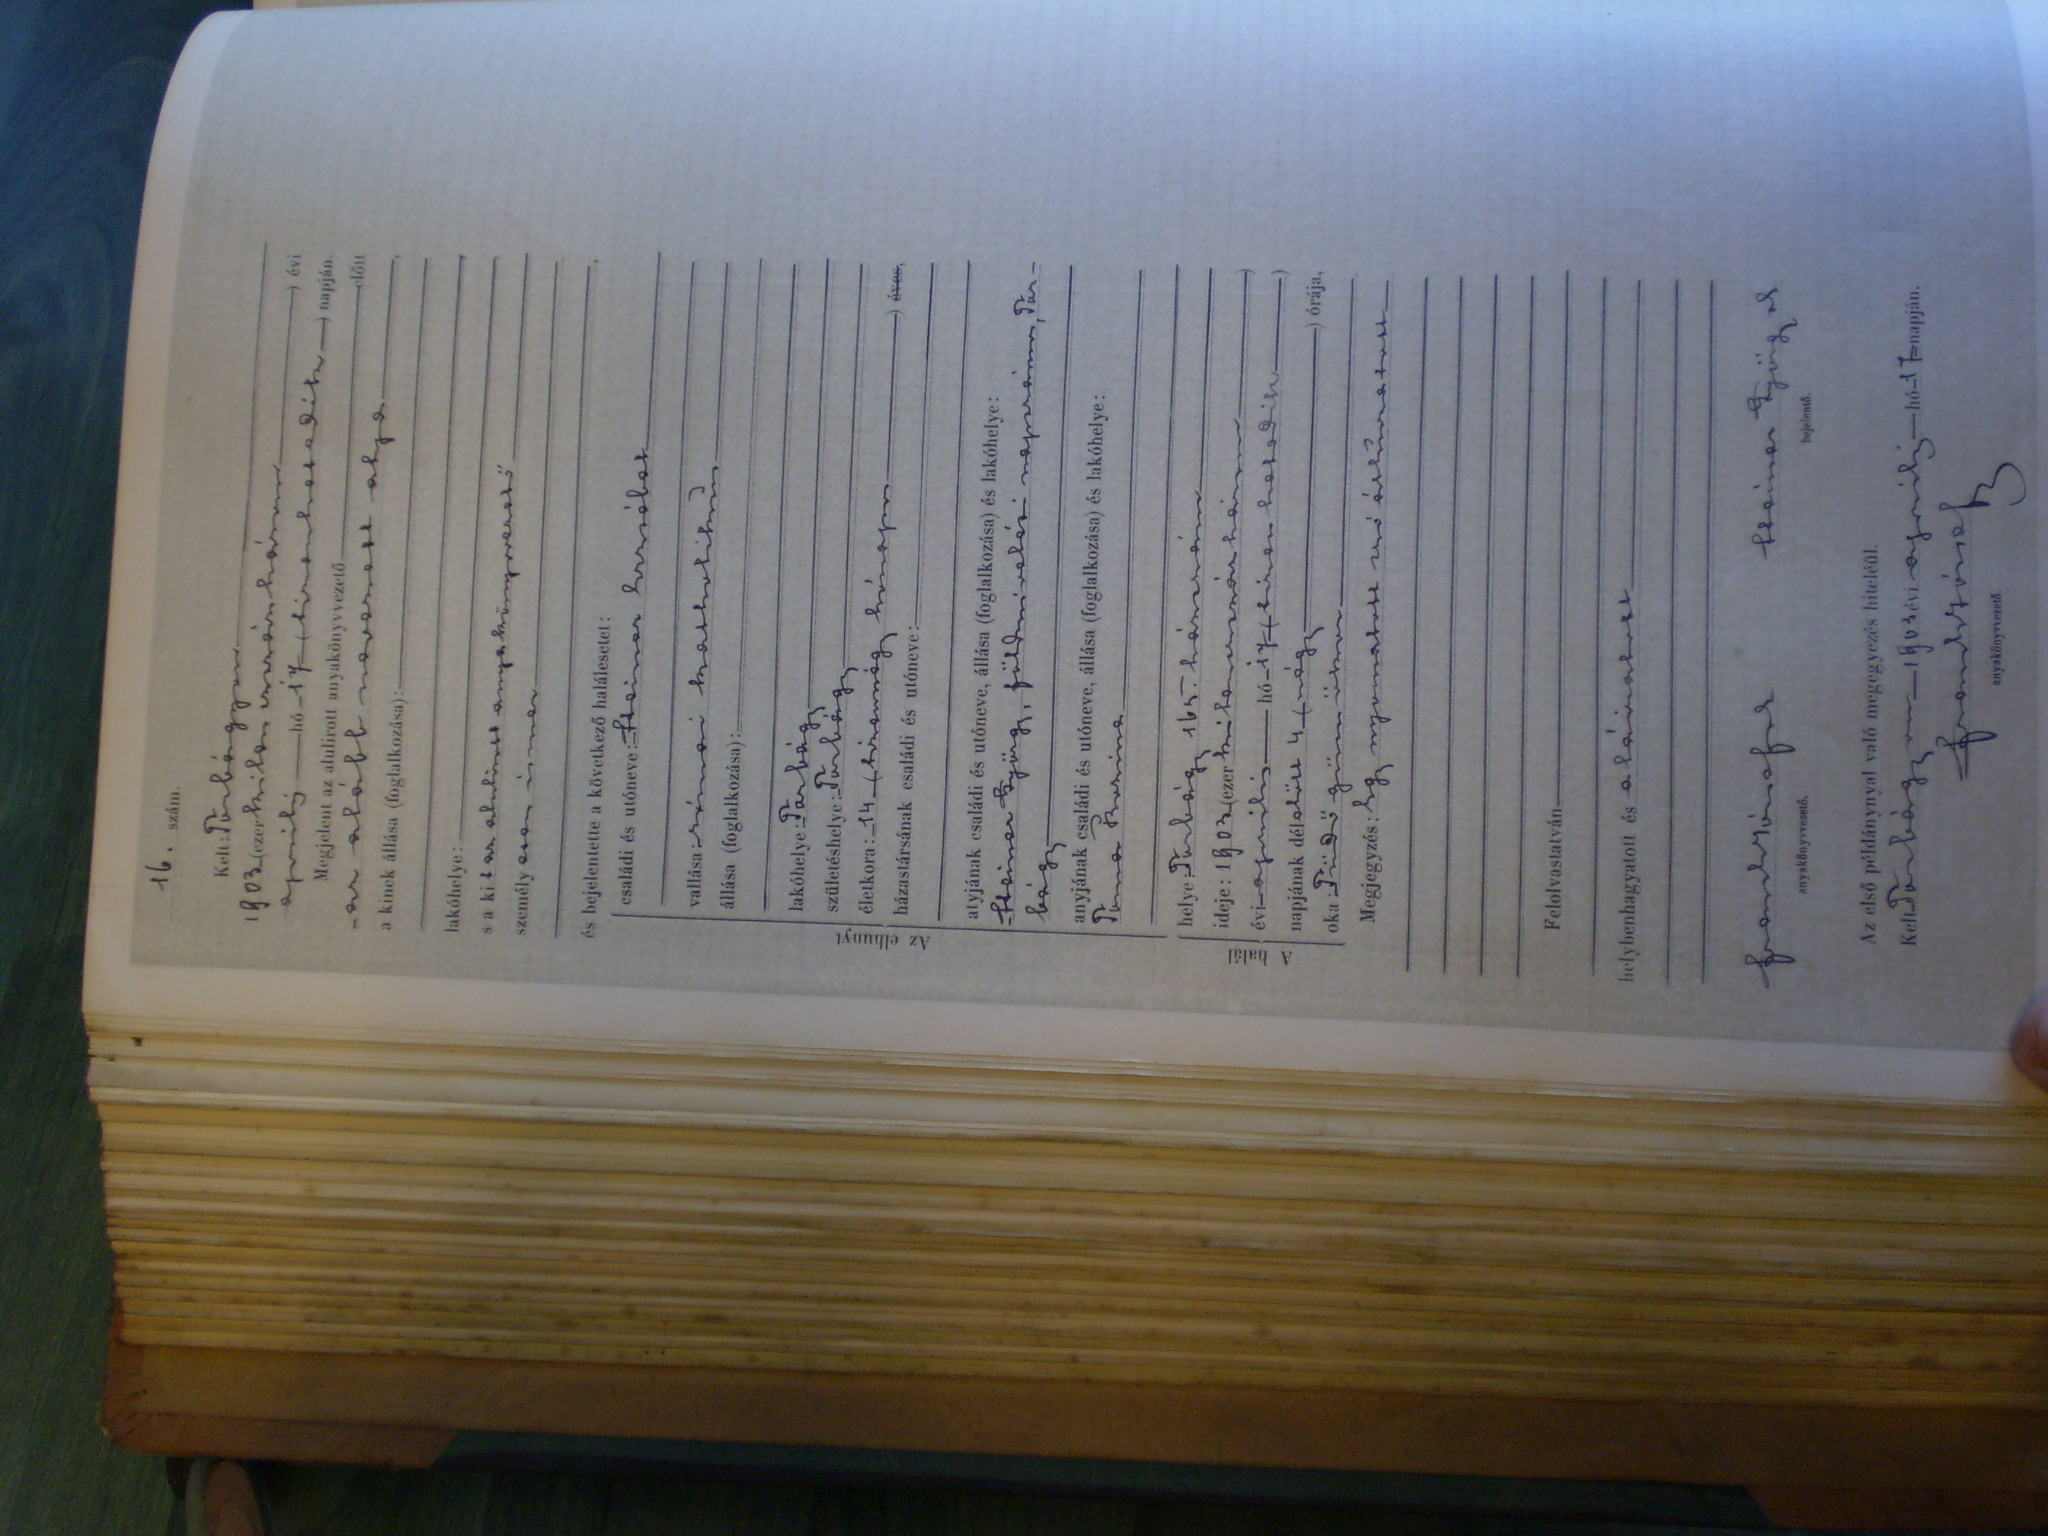 16. szám.
Kelt: Torbágyon
1903 (ezerkilencszázhárom) évi
április hó 17 (tizenhetedik) napján.
Megjelent az alulirott anyakönyvvezető előtt
az alább nevezett atya
a kinek állása (foglalkozása):
lakóhelye:
s a kit az alulirt anyakönyvvezető
személyesen ismer
és bejelentette a következő halálesetet:
Az elhunyt
családi és utóneve: Steiner Erzsébet
vallása: római katholikus
állása (foglalkozása):
lakóhelye: Torbágy
születéshelye: Torbágy
életkora: 14 (tizennégy) hónapos éves,
házastársának családi és utóneve:
atyjának családi és utóneve, állása (foglalkozása) és lakóhelye:
Steiner György, földmívelési napszámos, Tor-
bágy
anyjának családi és utóneve, állása (foglalkozása) és lakóhelye:
Terézia
A halál
helye: Torbágy, 165. házszám
ideje: 1903 (ezerkilencszázhárom)
évi április hó 17 (tizenhetedik)
napjának délelőtt 4 (négy) órája,
oka: Tüdőgümőkór
Megjegyzés: Egy nyomtatott szó áthúzatott
Felolvastatván
helybenhagyatott és aláiratott
József Steiner György
anyakönyvvezető. bejelentő.
Az első példánynyal való megegyezés hiteléül.
Kelt Torbágyon 1903 évi április hó 17 napján.
József
anyakönyvvezető.